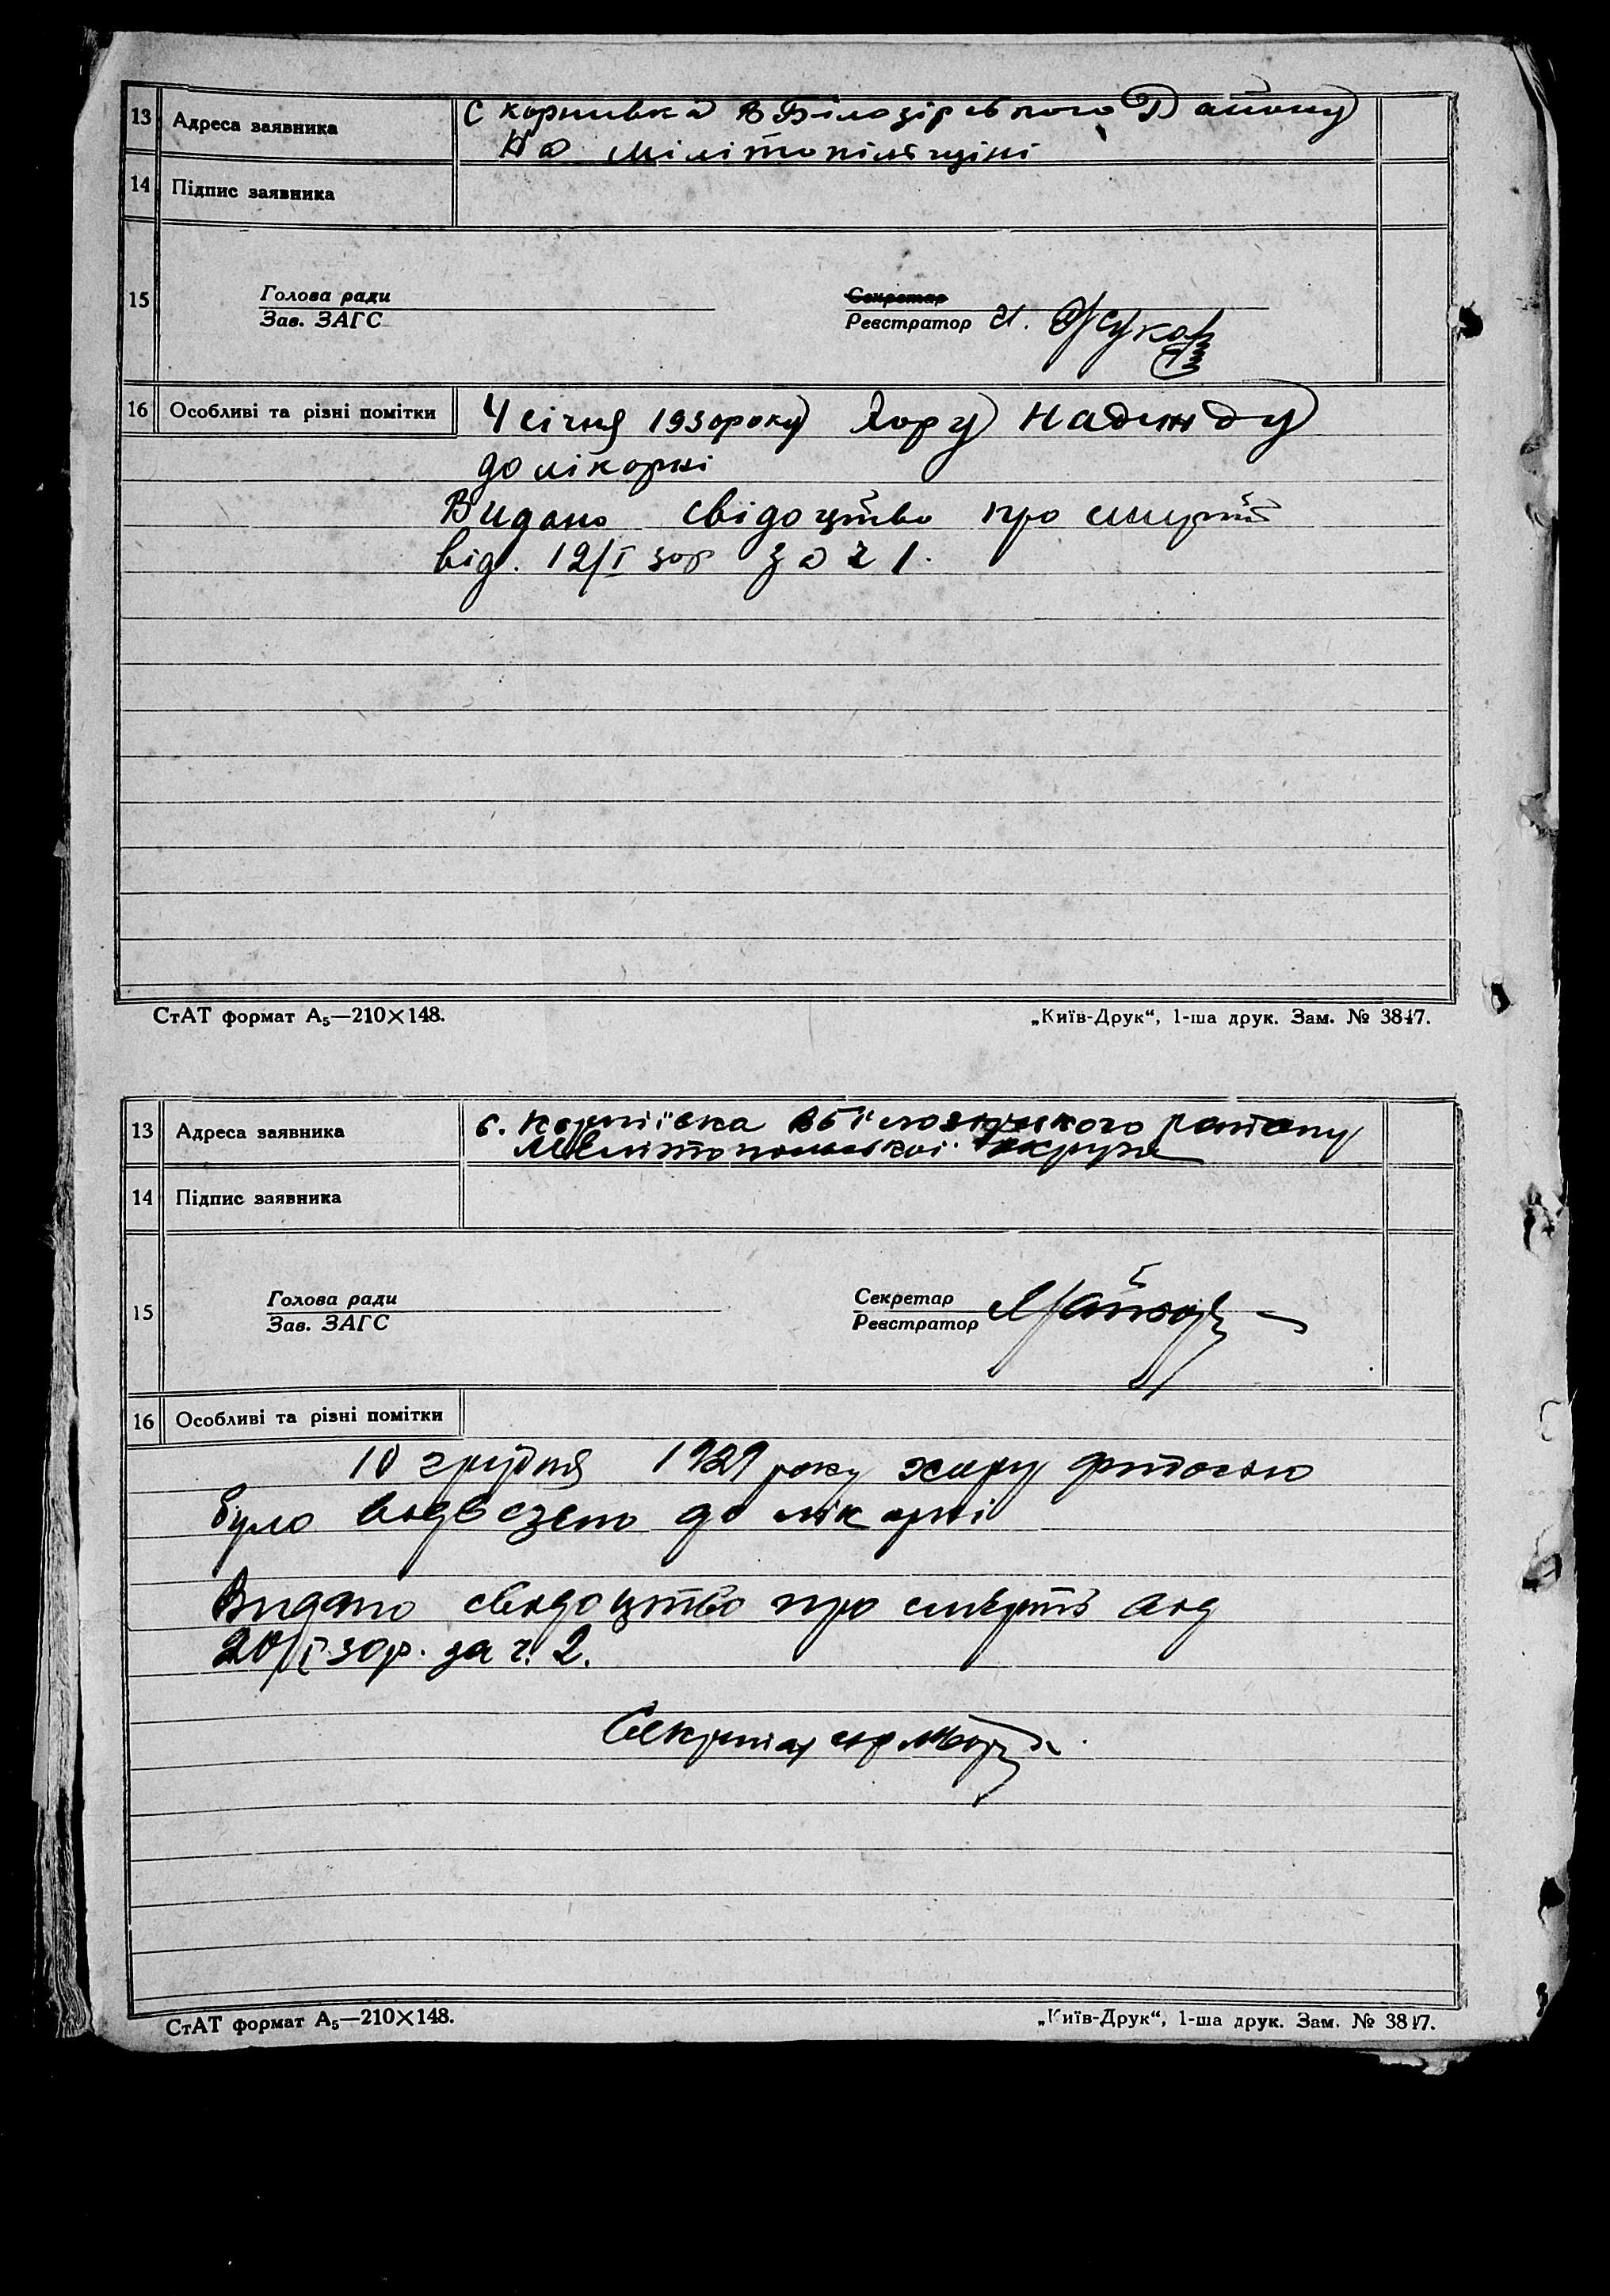 13 Адреса заявника С Корнивка В Білозірського Району
На Мілітопільщіні
14 Підпис заявника
15 Голова ради
Зав. ЗАГС
Секретар
Реєстратор И. Жуков
16 Особливі та різні помітки 4 січня 1930 року хору Надежду
до лікорні
Видано свідоцтво про смерть
від. 12/I 30р за ч 1.
СтАТ формат А₅—210×148. „Київ-Друк“, 1-ша друк. Зам. № 3847.
13 Адреса заявника с. Корніївка в Білозірського району
Мелітопольської округи
14 Підпис заявника
15 Голова ради
Зав. ЗАГС
Секретар
Реєстратор
16 Особливі та різні помітки
10 грудня 1929 року хиру
було водвезено до лікарні
Видано сводоцтво про смерть вод
20/I 30р. за ч. 2.
Секритар
СтАТ формат А₅—210×148. „Київ-Друк“, 1-ша друк. Зам. № 3847.